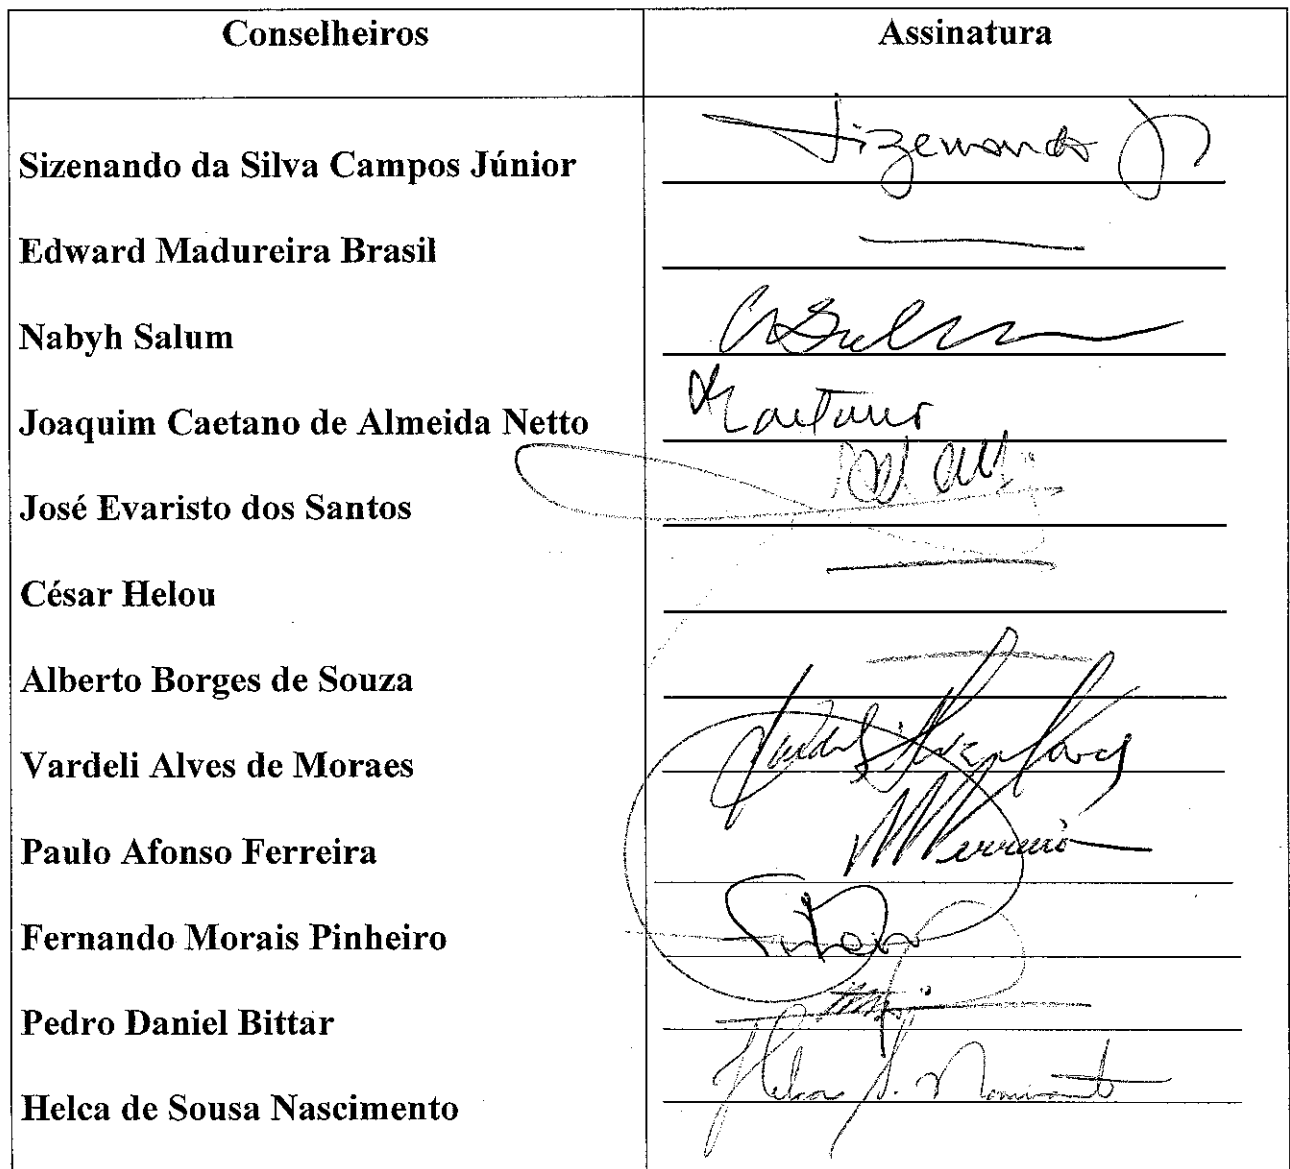 Conselheiros Assinatura
Sizenando da Silva Campos Júnior Sizenando Jr
Edward Madureira Brasil
Nabyh Salum
Joaquim Caetano de Almeida Netto Caetano
José Evaristo dos Santos
César Helou
Alberto Borges de Souza
Vardeli Alves de Moraes
Paulo Afonso Ferreira Ferreira
Fernando Morais Pinheiro
Pedro Daniel Bittar
Helca de Sousa Nascimento